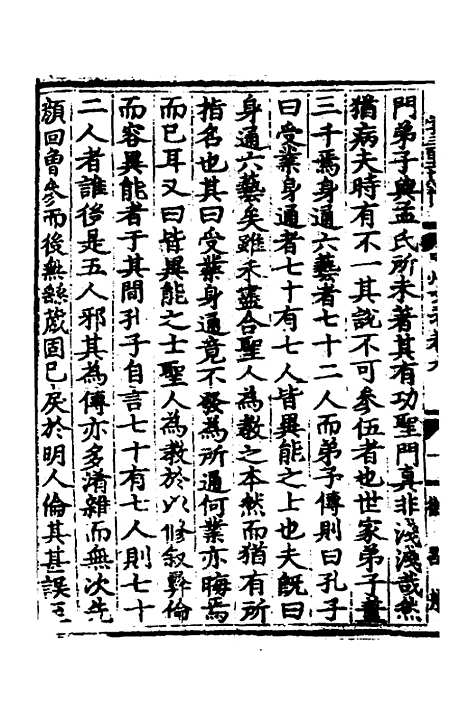 門弟子與孟氏所未著其有功聖門真非淺淺哉然
猶病夫時有不一其說不可參伍者也世家弟子蓋
三千焉身通六藝者七十二人而弟子傳則曰孔子
曰受業身通者七十有七人皆異能之士也夫既曰
身通六藝矣雖未盡合聖人為教之本然而猶有所
指名也其曰受業身通竟不發為所通何業亦晦焉
而已耳又曰皆異能之士聖人為教於以修叙彝倫
而容異能者于其間孔子自言七十有七人則七十
二人者誰後是五人邪其為傳亦多淆雜而無次先
顏回曾參而後無繇蒧固已戾於明人倫其甚誤